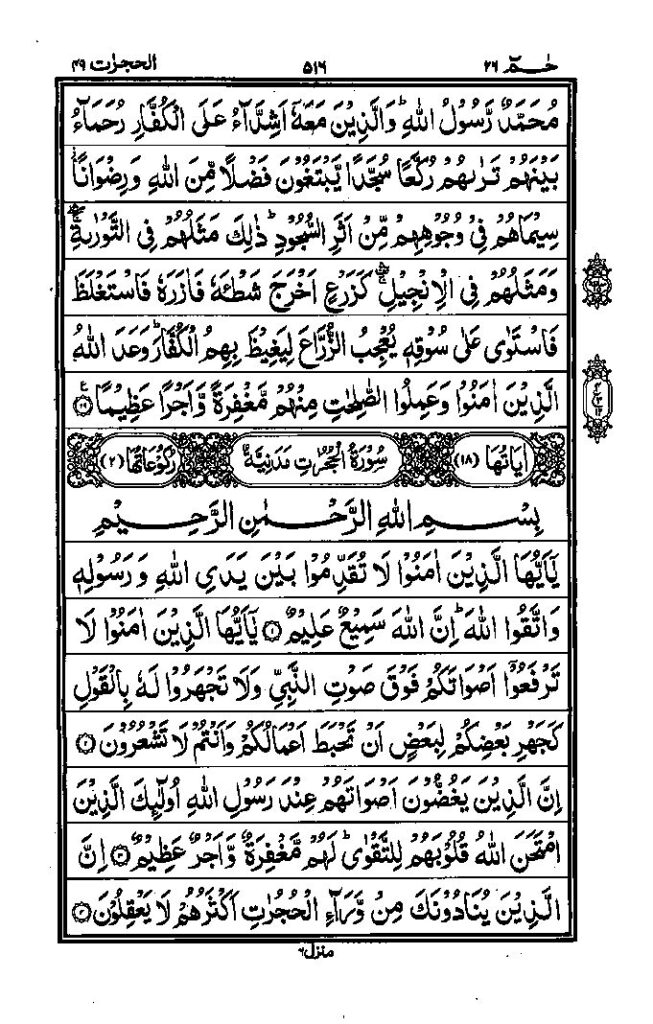 حٰمٓ ۲۶ ۵۱۶ الحجرٰت ۴۹
مُحَمَّدٌ رَّسُوْلُ اللّٰهِؕ وَالَّذِيْنَ مَعَهٗۤ اَشِدَّآءُ عَلَى الْكُفَّارِ رُحَمَآءُ
بَيْنَهُمْ تَرٰىهُمْ رُكَّعًا سُجَّدًا يَّبْتَغُوْنَ فَضْلًا مِّنَ اللّٰهِ وَرِضْوَانًا٘
سِيْمَاهُمْ فِيْ وُجُوْهِهِمْ مِّنْ اَثَرِ السُّجُوْدِؕ ذٰلِكَ مَثَلُهُمْ فِي التَّوْرٰىةِۛۖۚ
وَمَثَلُهُمْ فِي الْاِنْجِيْلِۛ۫ۚ كَزَرْعٍ اَخْرَجَ شَطْـَٔهٗ فَاٰزَرَهٗ فَاسْتَغْلَظَ
فَاسْتَوٰى عَلٰى سُوْقِهٖ يُعْجِبُ الزُّرَّاعَ لِيَغِيْظَ بِهِمُ الْكُفَّارَؕ وَعَدَ اللّٰهُ
الَّذِيْنَ اٰمَنُوْا وَعَمِلُوا الصّٰلِحٰتِ مِنْهُمْ مَّغْفِرَةً وَّاَجْرًا عَظِيْمًا ۲۹
اٰيَاتُهَا (۱۸) سُوْرَةُ الْحُجُرٰتِ مَدَنِيَّةٌ رُكُوْعَاتُهَا (۲)
بِسْمِ اللّٰهِ الرَّحْمٰنِ الرَّحِيْمِ
يٰۤاَيُّهَا الَّذِيْنَ اٰمَنُوْا لَا تُقَدِّمُوْا بَيْنَ يَدَيِ اللّٰهِ وَرَسُوْلِهٖ
وَاتَّقُوا اللّٰهَؕ اِنَّ اللّٰهَ سَمِيْعٌ عَلِيْمٌ ۱ يٰۤاَيُّهَا الَّذِيْنَ اٰمَنُوْا لَا
تَرْفَعُوْۤا اَصْوَاتَكُمْ فَوْقَ صَوْتِ النَّبِيِّ وَلَا تَجْهَرُوْا لَهٗ بِالْقَوْلِ
كَجَهْرِ بَعْضِكُمْ لِبَعْضٍ اَنْ تَحْبَطَ اَعْمَالُكُمْ وَاَنْتُمْ لَا تَشْعُرُوْنَ ۲
اِنَّ الَّذِيْنَ يَغُضُّوْنَ اَصْوَاتَهُمْ عِنْدَ رَسُوْلِ اللّٰهِ اُولٰٓئِكَ الَّذِيْنَ
امْتَحَنَ اللّٰهُ قُلُوْبَهُمْ لِلتَّقْوٰىؕ لَهُمْ مَّغْفِرَةٌ وَّاَجْرٌ عَظِيْمٌ ۳ اِنَّ
الَّذِيْنَ يُنَادُوْنَكَ مِنْ وَّرَآءِ الْحُجُرٰتِ اَكْثَرُهُمْ لَا يَعْقِلُوْنَ ۴
منزل۶